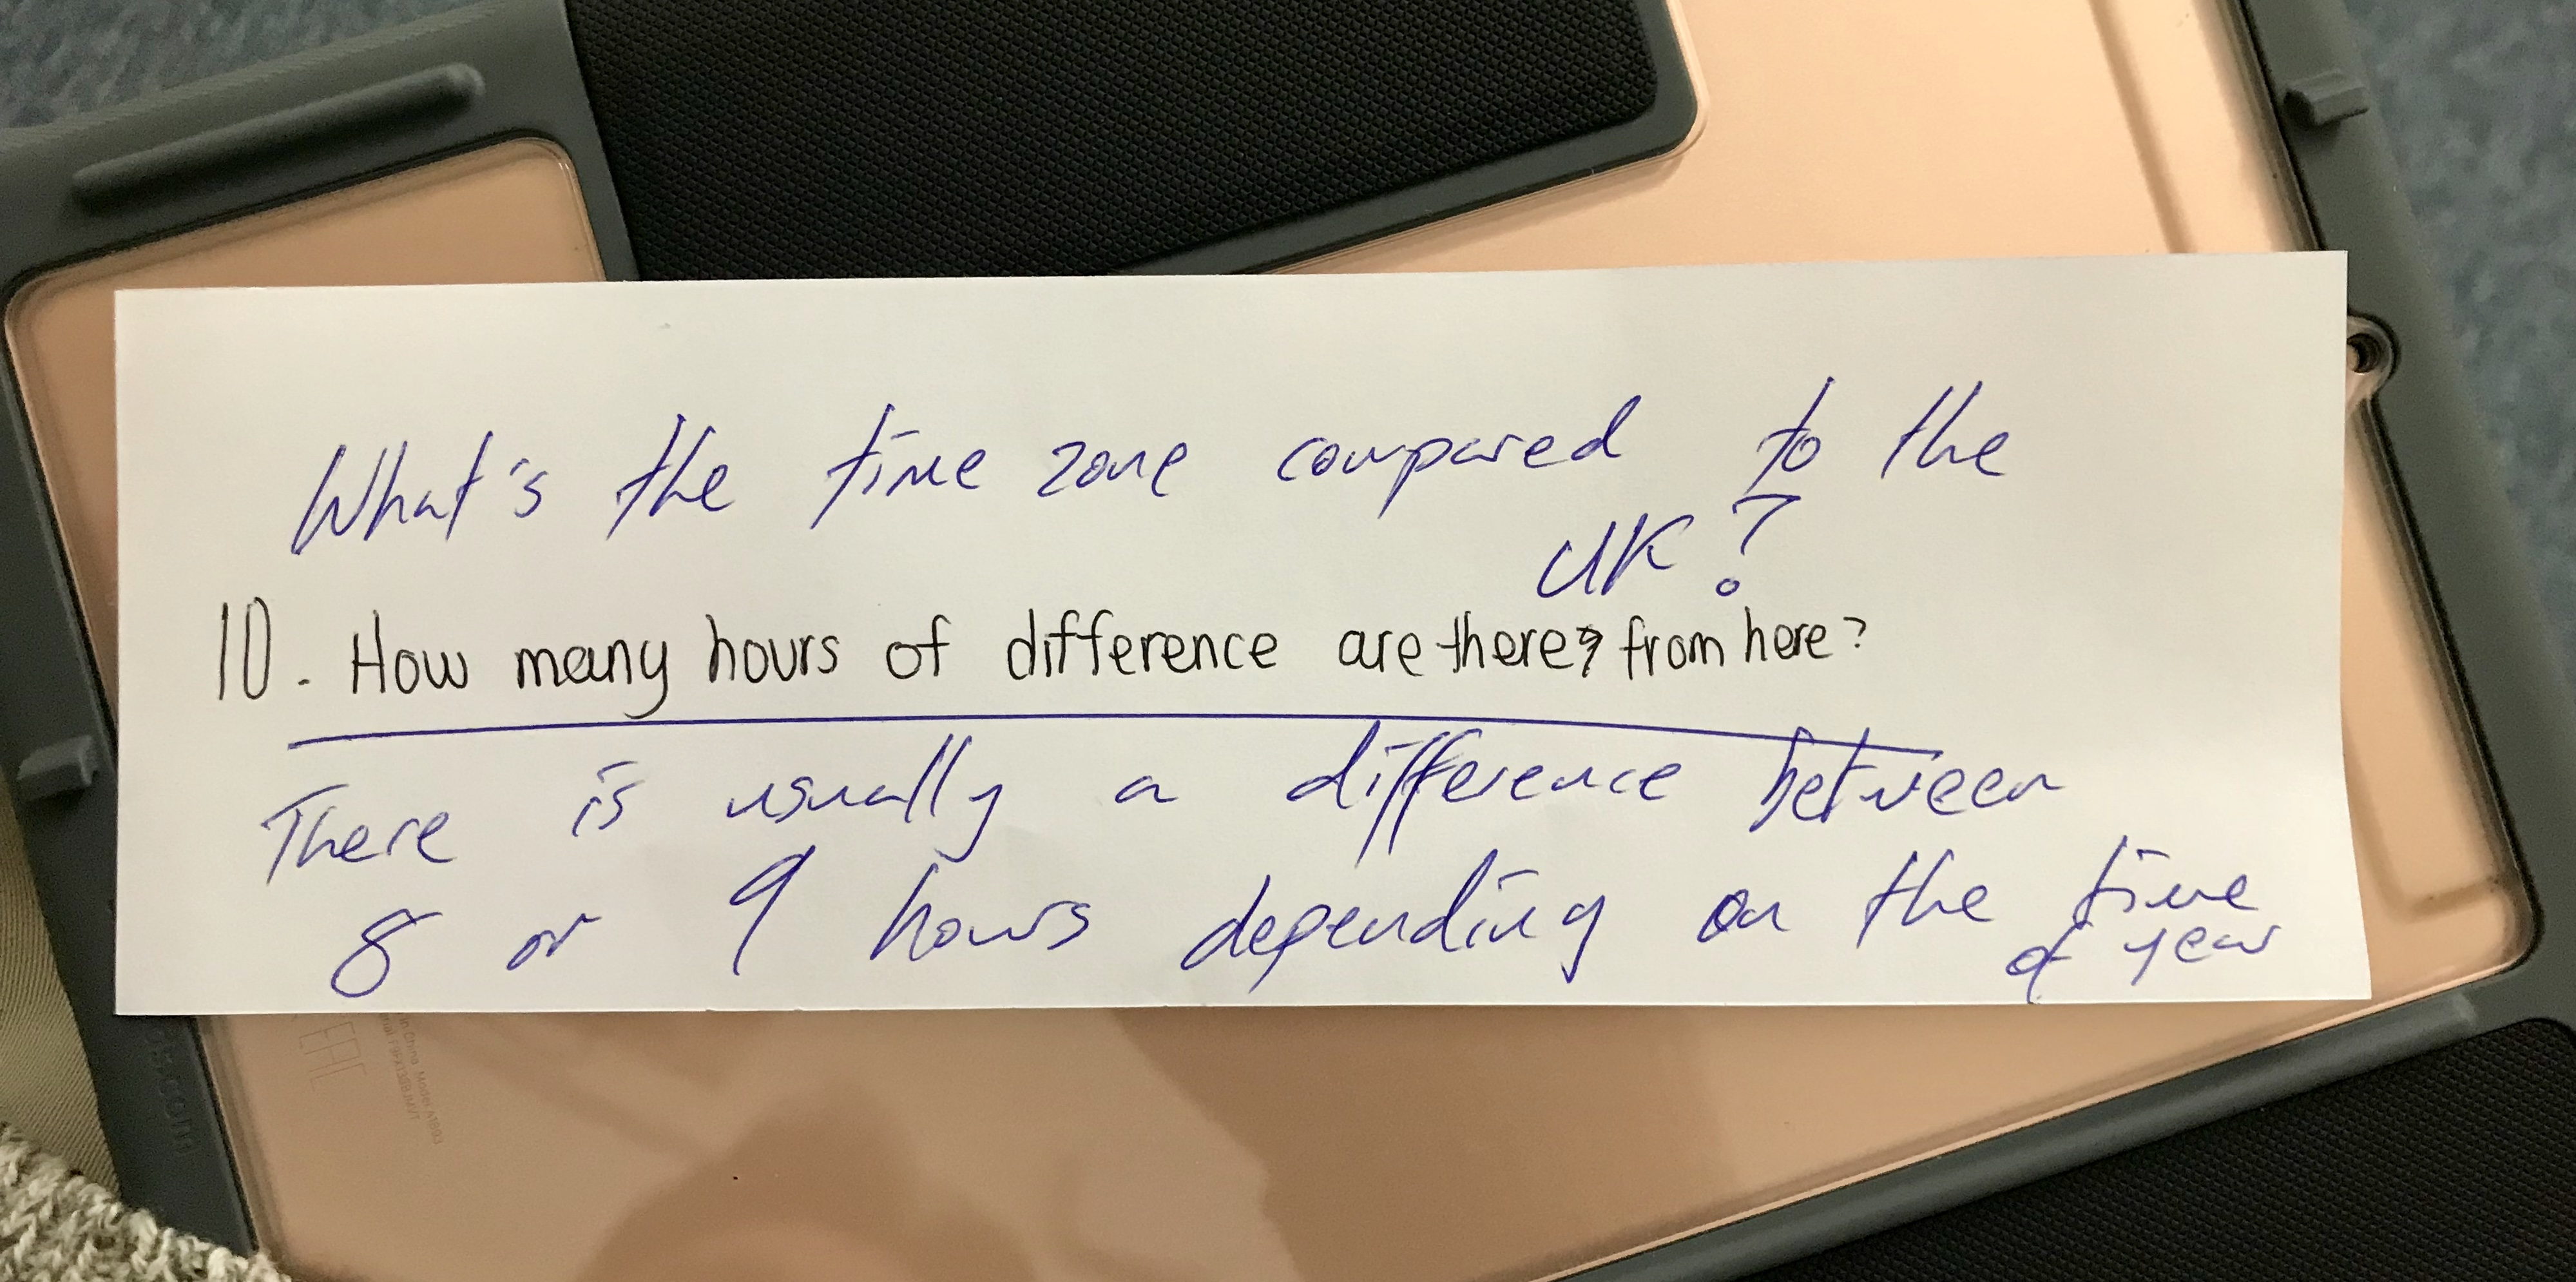 What's the time zone compared to the
UK?
10. How many hours of difference are there? from here?
There is usually a difference between
8 or 9 hours depending on the time
of year
EAC
in China Model A1893